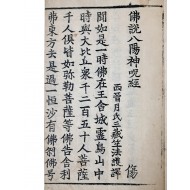 佛說八陽神呪經
西晉月氏三藏竺法護譯
聞如是一時佛在王舍城靈鳥山中
時與大比丘衆千二百五十人菩薩
千人俱皆如彌勒菩薩等佛告舍利
弗東方去是過一恒沙有佛剎佛號
傷